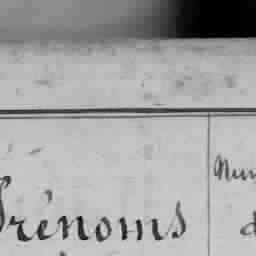 Prénoms
Num
d